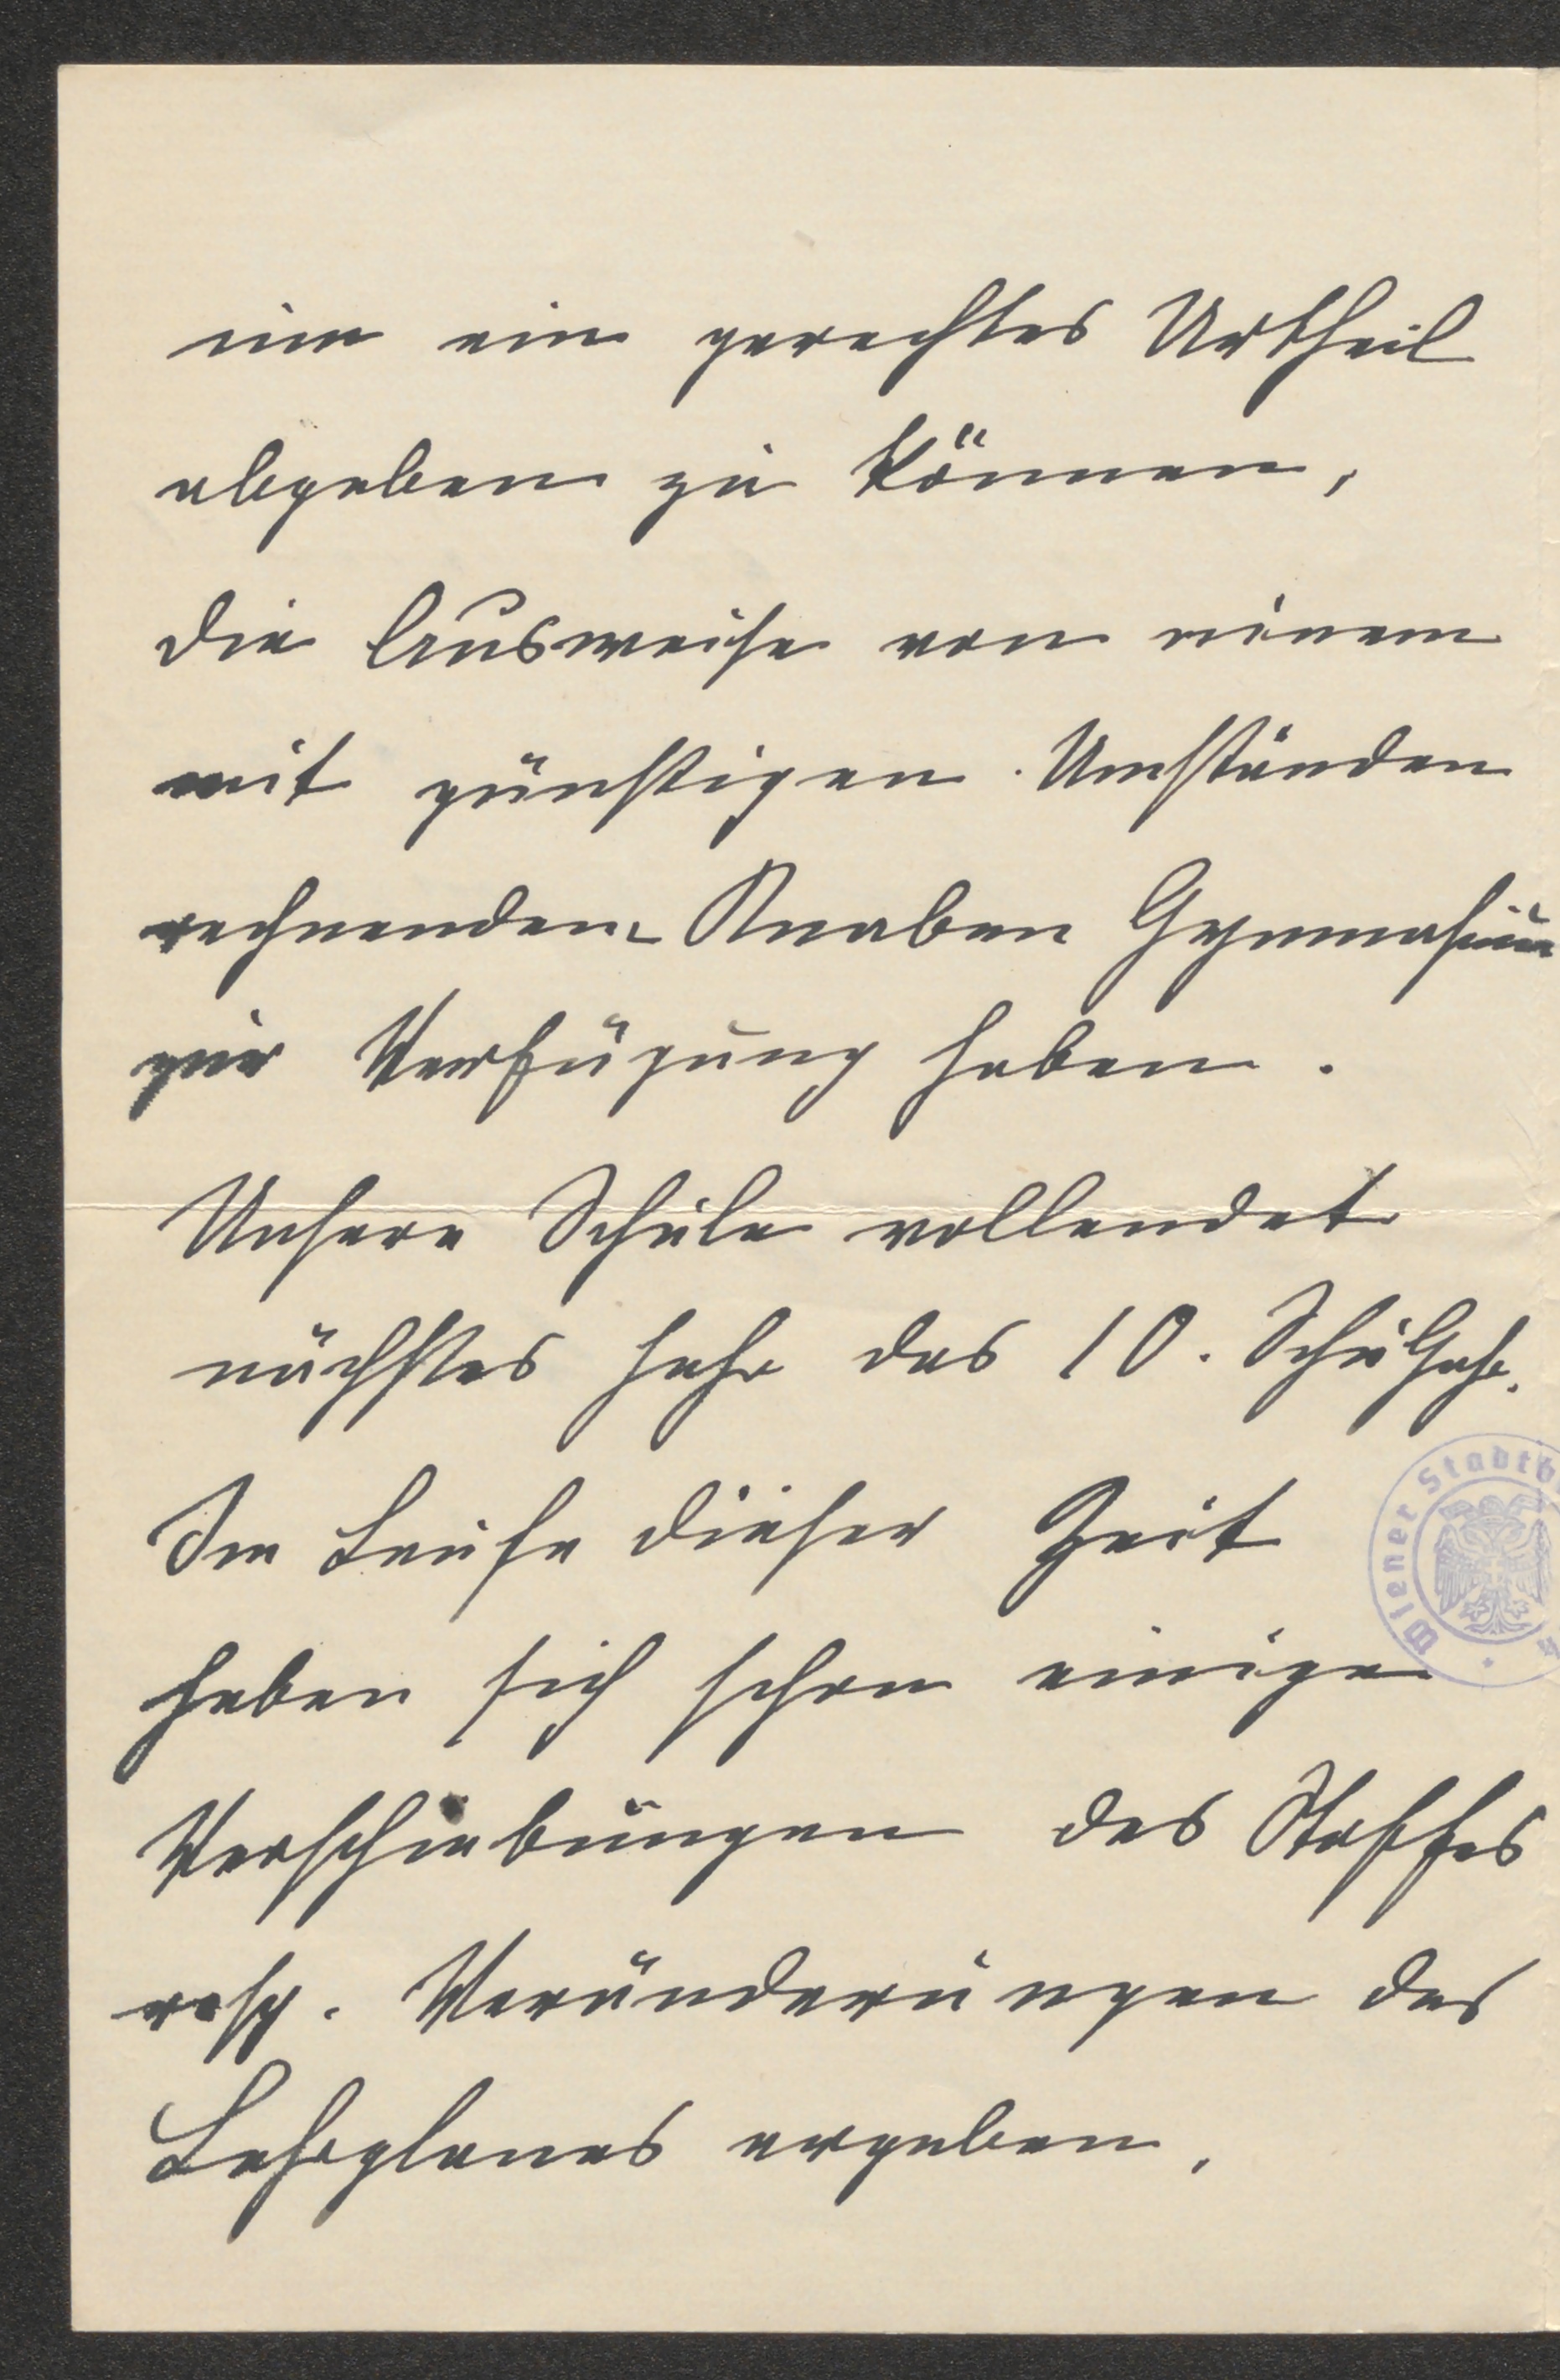 um ein gerechtes Urtheil
abgeben zu können,
die Ausweise von einem
mit günstigen Umständen
rechnenden Knaben Gymnasium
zur Verfügung haben.
Unsere Schule vollendet
nächstes Jahr das 10. Schuljahr.
Im Laufe dieser Zeit
haben sich schon einige
Verschiebungen des Stoffes
resp. Veränderungen des
Lehrplanes ergeben.
Wiener Stadtb